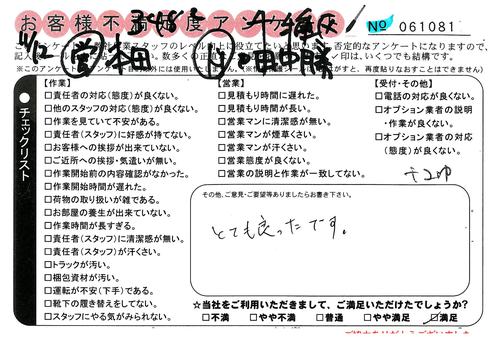 お客様不満足度アンケート
№ 061081
スタッフのレベル向上に役立てたいと思います。否定的なアンケートになりますので、
印は、いくつでも結構です。
チェックリスト
【作業】
□責任者の対応(態度)が良くない。
□他のスタッフの対応(態度)が良くない。
□作業を見ていて不安がある。
□責任者(スタッフ)に好感が持てない。
□お客様への挨拶が出来ていない。
□ご近所への挨拶・気遣いが無い。
□作業開始前の内容確認がなかった。
□作業開始時間が遅れた。
□荷物の取り扱いが雑である。
□お部屋の養生が出来ていない。
□作業時間が長すぎる。
□責任者(スタッフ)に清潔感が無い。
□責任者(スタッフ)が汗くさい。
□トラックが汚い。
□梱包資材が汚い。
□運転が不安(下手)である。
□靴下の履き替えをしてない。
□スタッフにやる気がみられない。
【営業】
□見積もり時間に遅れた。
□見積もり時間が長い。
□営業マンに清潔感が無い。
□営業マンが煙草くさい。
□営業マンが汗くさい。
□営業態度が良くない。
□営業の説明と作業が一致してない。
【受付・その他】
□電話の対応が良くない。
□オプション業者の説明
・作業が良くない。
□オプション業者の対応
(態度)が良くない。
その他、ご意見・ご要望等ありましたらお書き下さい。
とても良かったです。
☆当社をご利用いただきまして、ご満足いただけたでしょうか?
□不満 □やや不満 □普通 □やや満足 ☑満足